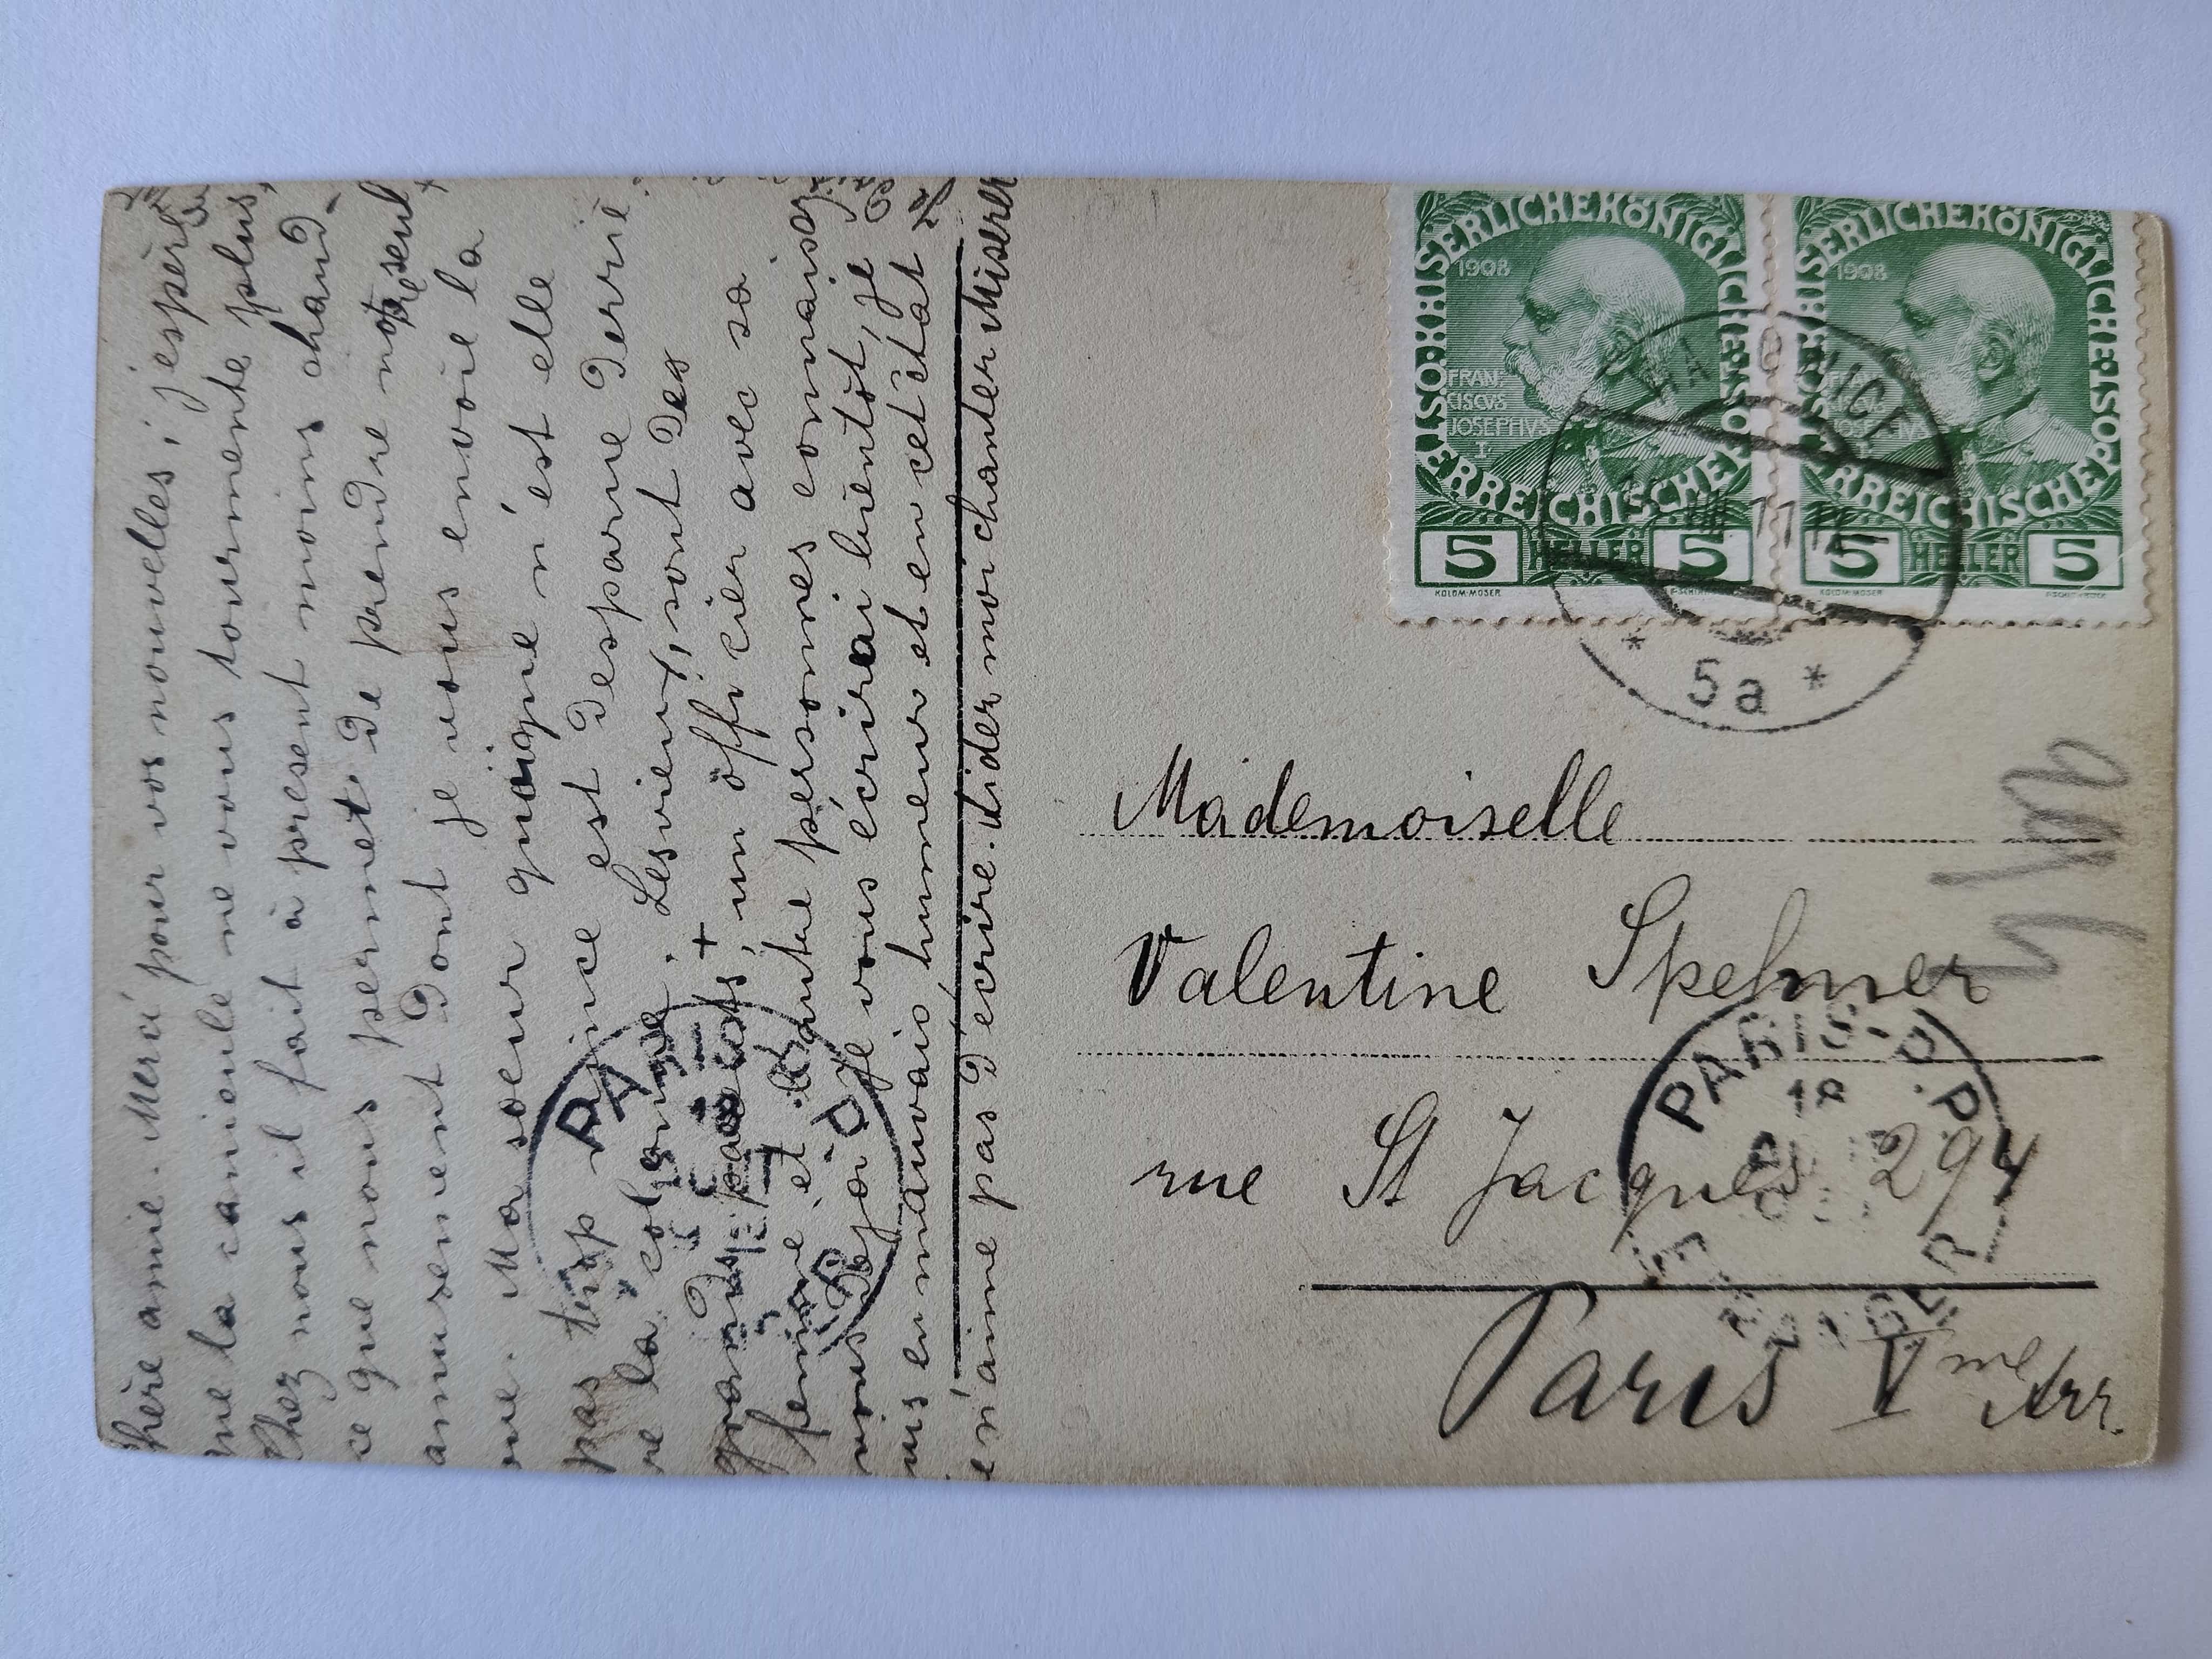 Chère amie. Merci pour vos nouvelles; j'espère
que la canicule ne vous tourmente plus,
Chez nous il fait à présent moins chaud,
ce que nous permet de prendre notre seul
amusement dont je vous envoie la
vue. Ma soeur quoique n'est elle
pas trop mince est des parue derriè
re la colonne. Les vieux, sont des
grands parents, + un officier avec sa
femme et l'autre personnes connaissez
vous déjà. Je vous écrirai bientôt, je
suis en mauvais humeur et en cet état
je n'aime pas d'écrire. Aider moi chanter Miserer
KAISERLICHE KÖNIGLICHE ÖSTERREICHISCHE POST
1908
FRAN-
CISCVS
JOSEPHVS
I
5 HELLER 5
KOLOM·MOSER
KAISERLICHE KÖNIGLICHE ÖSTERREICHISCHE POST
1908
5 HELLER 5
KOLOM·MOSER
VIII 11
* 5a *
Mademoiselle
Valentine Spelmer
rue St Jacques 294
Paris Vme Arr.
PARIS P.P.
18
ETRANGER
PARIS